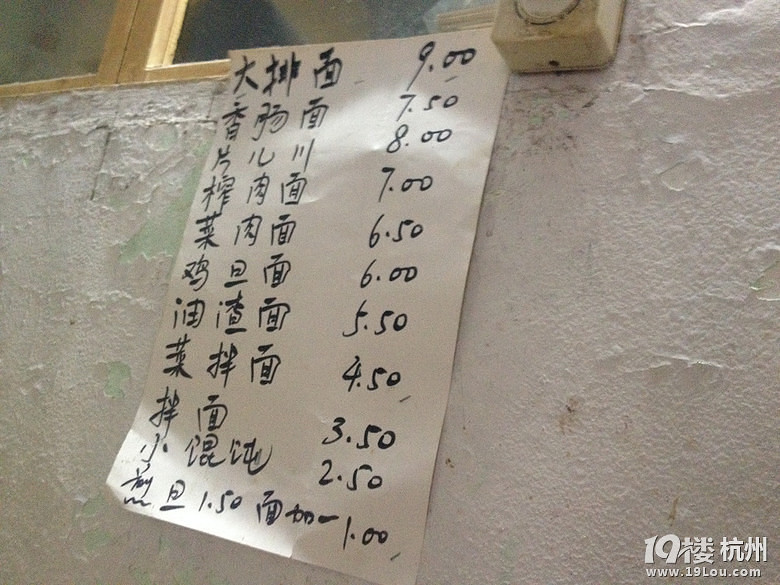 大排面 9.00
香肠面 7.50
片儿川 8.00
榨肉面 7.00
菜肉面 6.50
鸡旦面 6.00
油渣面 5.50
菜拌面 4.50
拌面 3.50
小馄饨 2.50
煎旦1.50 面加一1.00
19楼 杭州
www.19Lou.com